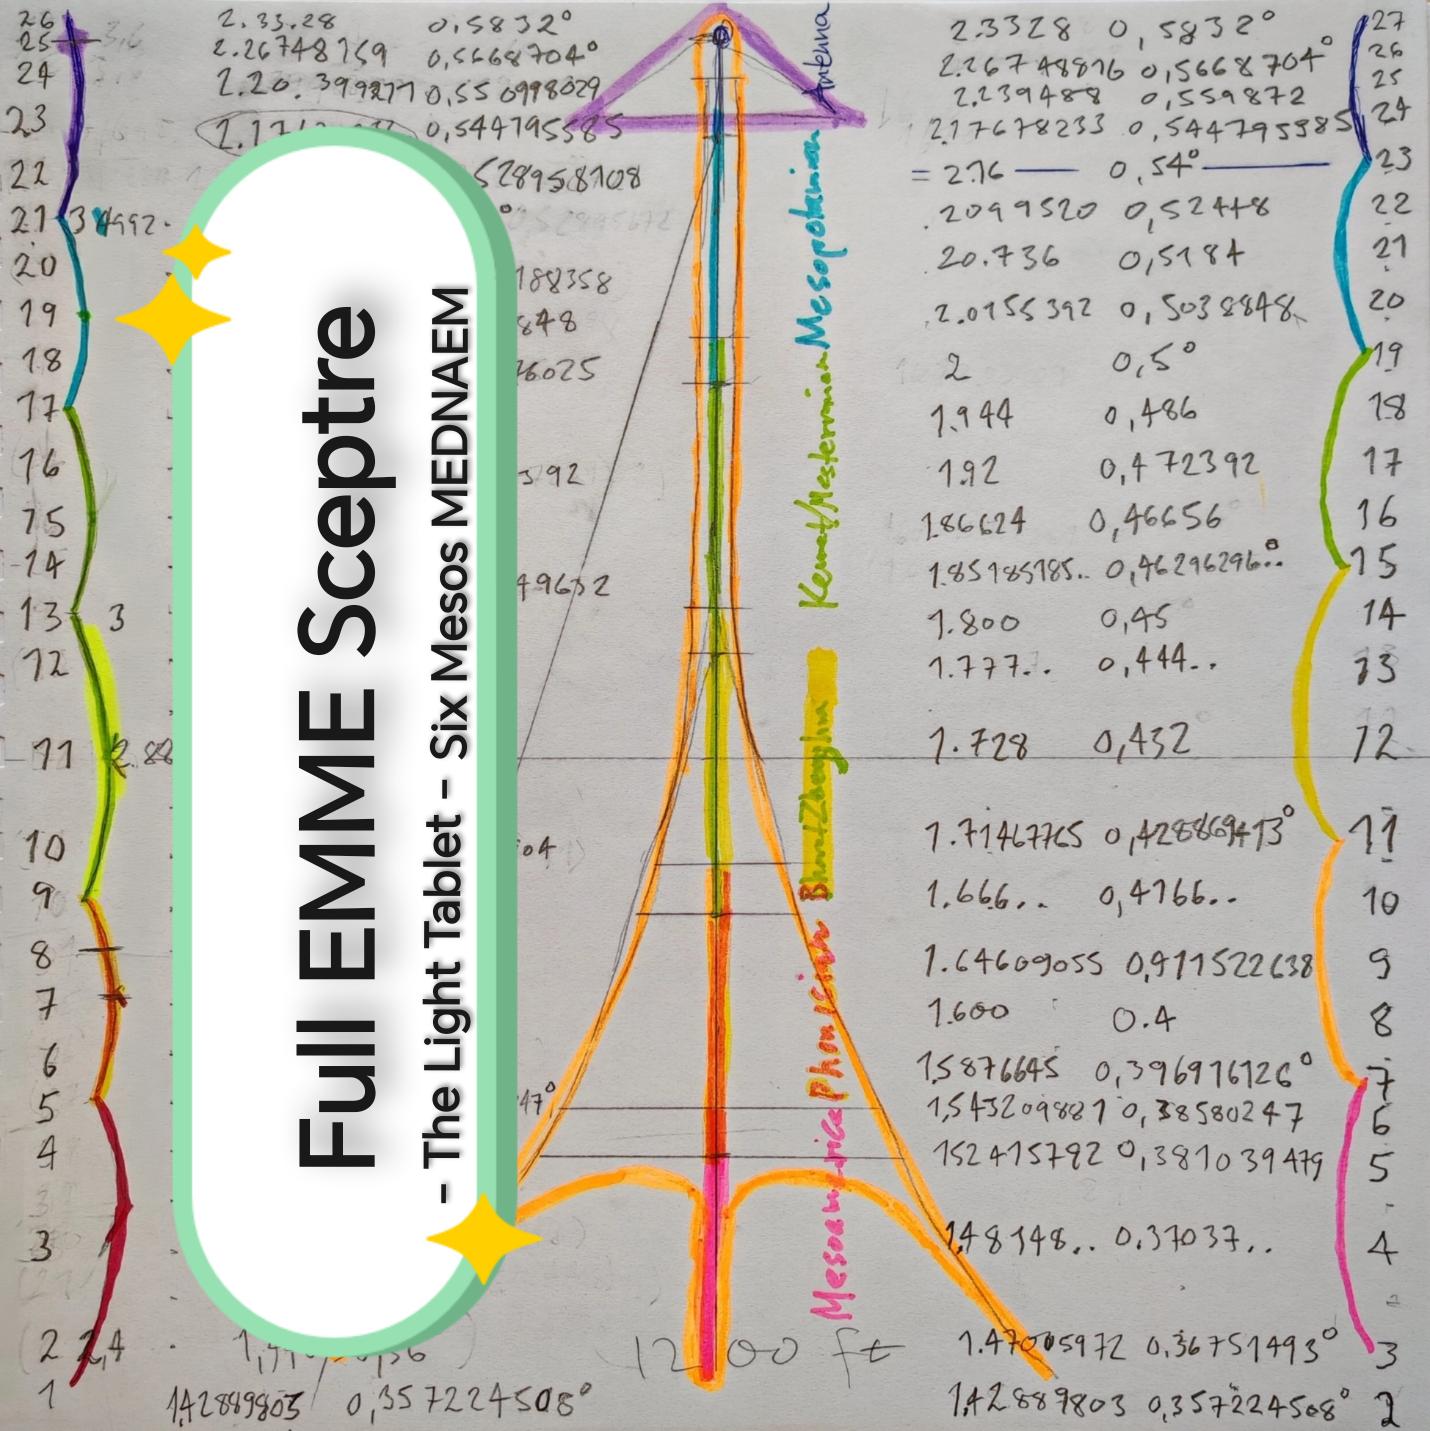 26 2.33.28 0,5832°
25 3,6 2.26748159 0,5668704°
24 2.20.399277 0,550998029
23 0,544795585
22 528958108
21 3 4992.
20 188358
19 848
18 76025
17
16 392
15
14 49632
13 3
12
11 2.88
10 04
9
8
7
6
5 47°
4
3
2 2,4
1 1,42889803 0,357224508°
Full EMME Sceptre
- The Light Tablet - Six Mesos MEDNAEM
Antenna
Mesopotamian
Kemet/Mesterranian
Phoenician
Mesoamerica
1200 ft
2.3328 0,5832° 27
2.267 48816 0,5668704° 26
2.239488 0,559872 25
2.17678233 0,544795585 24
= 2.16 0,54° 23
2099520 0,52448 22
20.736 0,5184 21
2.0155392 0,5038848 20
2 0,5° 19
1.944 0,486 18
1.92 0,472392 17
1.86624 0,46656 16
1.85185185.. 0,46296296..° 15
1.800 0,45 14
1.777.. 0,444.. 13
1.728 0,432 12
1.71467765 0,428869413° 11
1.666.. 0,4166.. 10
1.64609055 0,411522638 9
1.600 0.4 8
1,5876645 0,396916126° 7
1,543209881 0,38580247 6
152415792 0,381039479 5
1,48148.. 0.37037.. 4
1.47005972 0,36751493° 3
1,42889803 0,357224508° 2